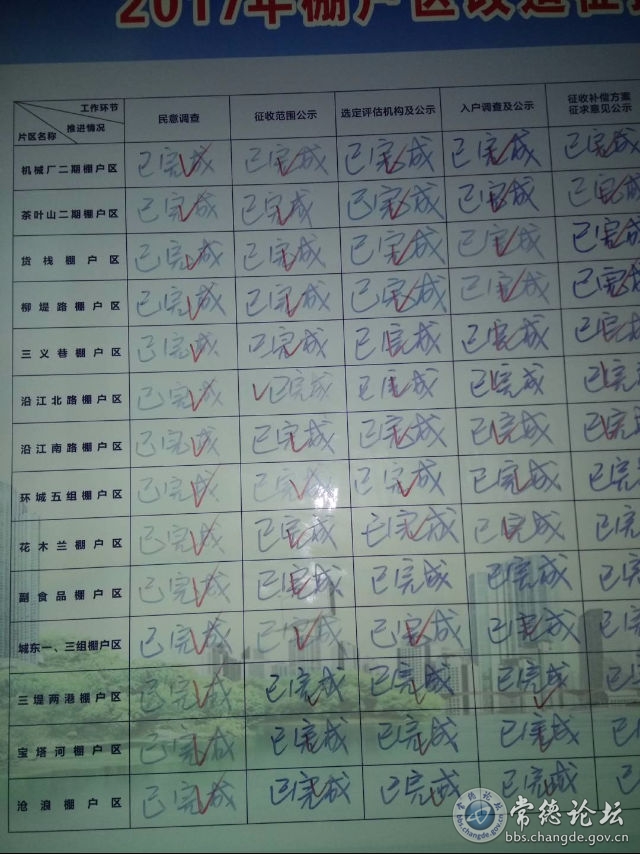 2017年棚户区改造征
工作环节
推进情况
片区名称
民意调查 征收范围公示 选定评估机构及公示 入户调查及公示 征收补偿方案
征求意见公示
机械厂二期棚户区 已完成 已完成 已完成 已完成 已完成
茶叶山二期棚户区 已完成 已完成 已完成 已完成 已完成
货栈棚户区 已完成 已完成 已完成 已完成 已完成
柳堤路棚户区 已完成 已完成 已完成 已完成 已完成
三义巷棚户区 已完成 已完成 已完成 已完成 已完成
沿江北路棚户区 已完成 已完成 已完成 已完成 已完成
沿江南路棚户区 已完成 已完成 已完成 已完成 已完成
环城五组棚户区 已完成 已完成 已完成 已完成 已完
花木兰棚户区 已完成 已完成 已完成 已完成 已完
副食品棚户区 已完成 已完成 已完成 已完成 已完
城东一、三组棚户区 已完成 已完成 已完成 已完成 已完
三堤两港棚户区 已完成 已完成 已完成 已完成 已完
宝塔河棚户区 已完成 已完成 已完成 已完成 已
沧浪棚户区 已完成 已完成 已完成 已完成 已
常德论坛
bbs.changde.gov.cn